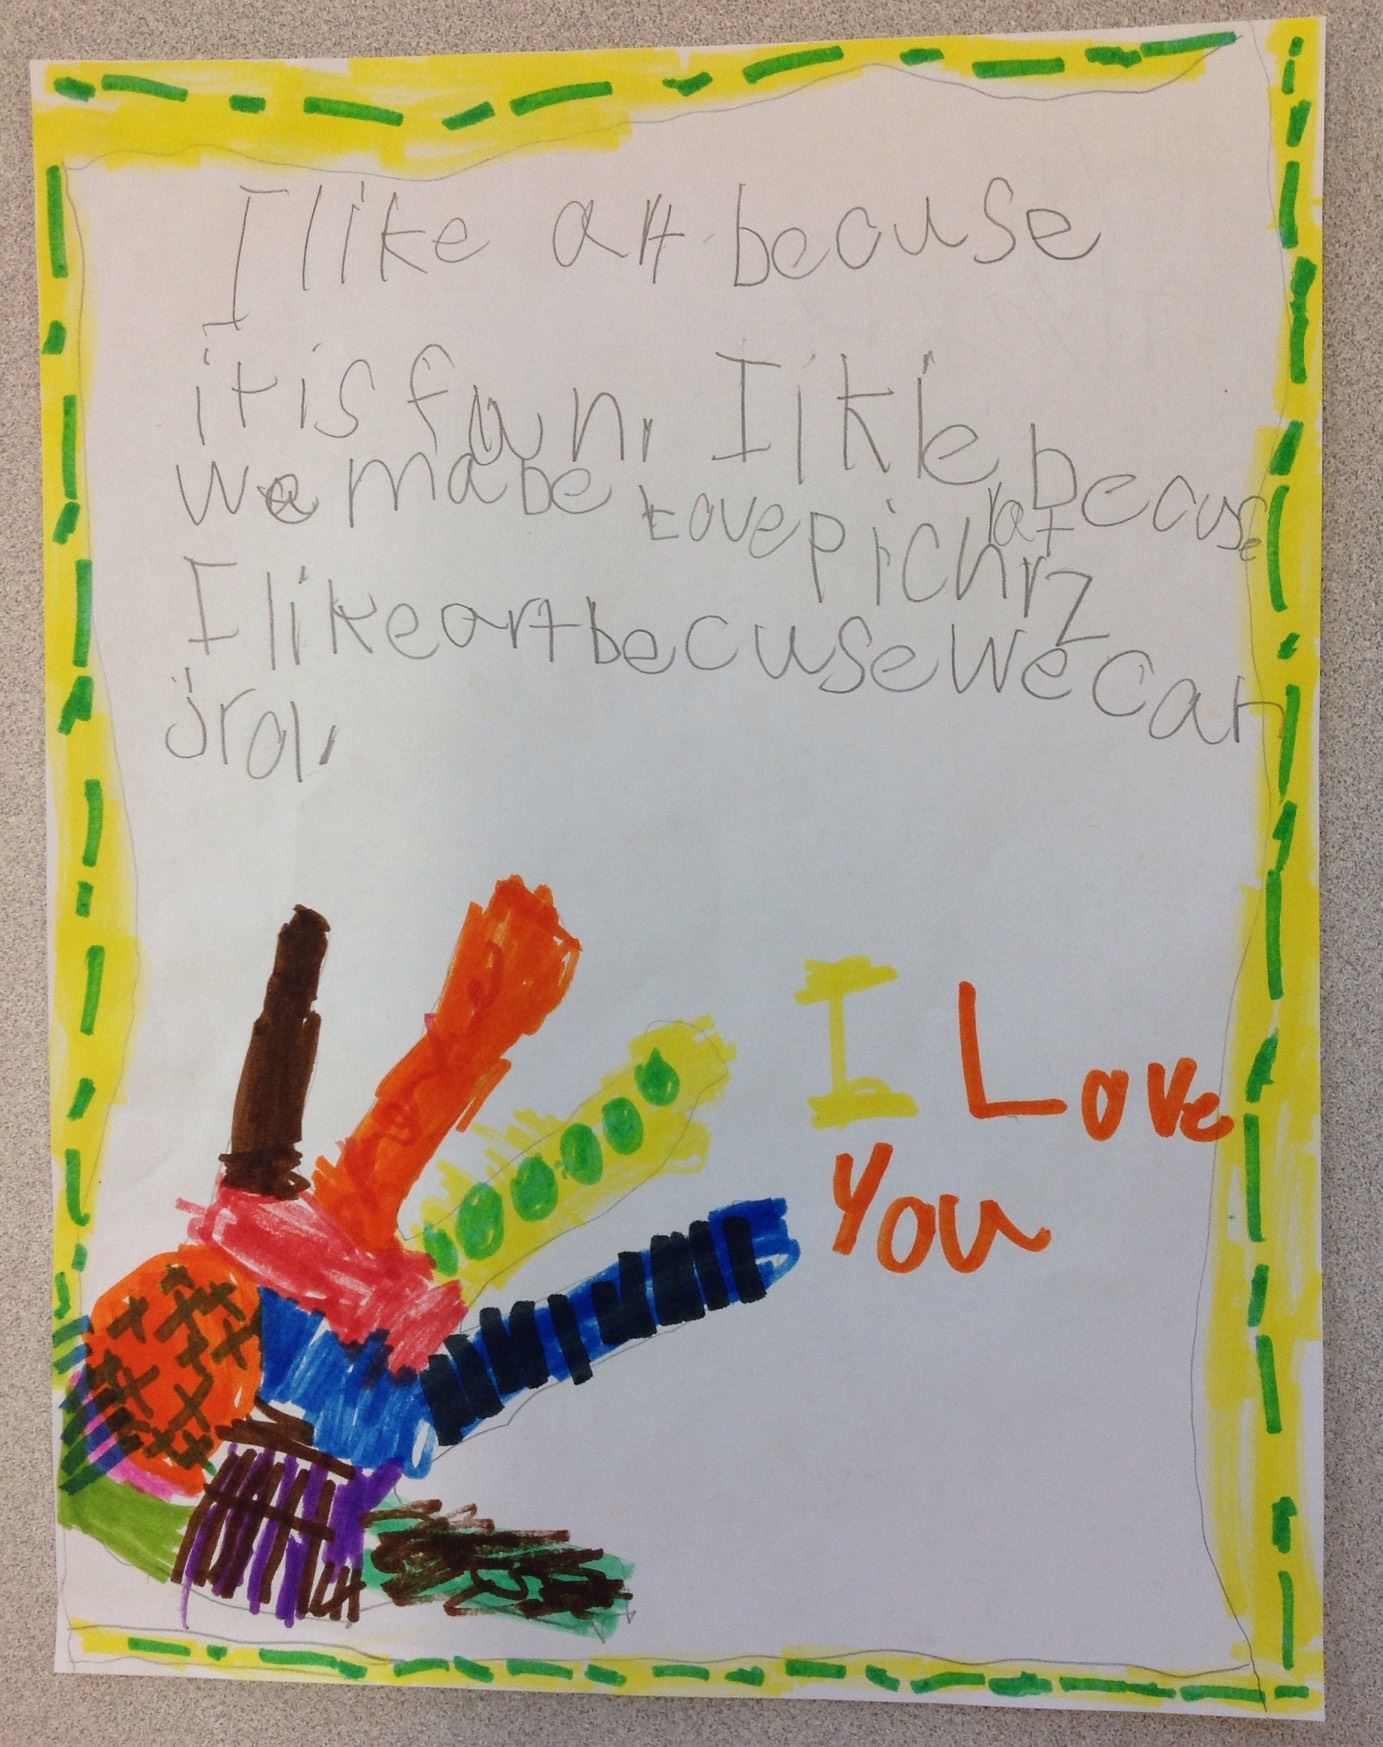 I like art becuse
it is fun, I like becuse
we made Love pichrz
I like art becuse we can
jrol,
I Love
You